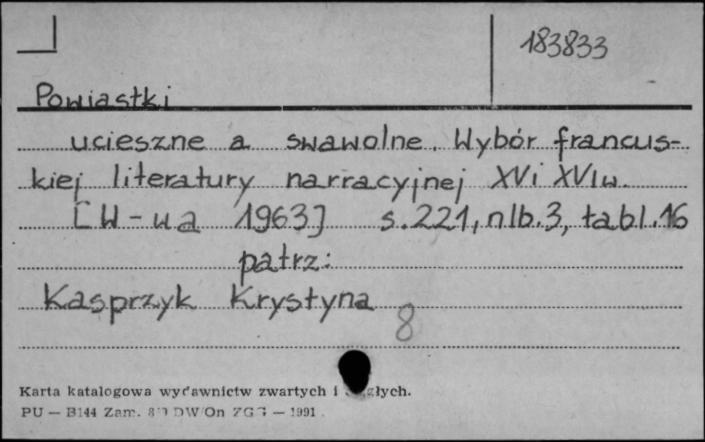 183833
Powiastki
ucieszne a swawolne. Wybór francus-
kiej literatury narracyjnej XV i XVI w.
[W-wa 1963] s.221, nlb.3, tabl.16
patrz:
Kasprzyk Krystyna
8
Karta katalogowa wydawnictw zwartych i
PU — B144 Zam. DW/On ZGG — 1991